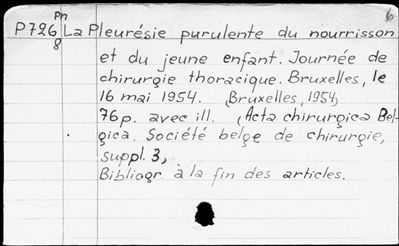 Pn 6
P726 La Pleurésie purulente du nourrisson
8
et du jeune enfant. Journée de
chirurgie thoracique. Bruxelles, le
16 mai 1954. (Bruxelles, 1954)
76p. avec ill. (Acta chirurgica Bel-
gica. Société belge de chirurgie,
Suppl. 3,
Bibliogr. à la fin des articles.